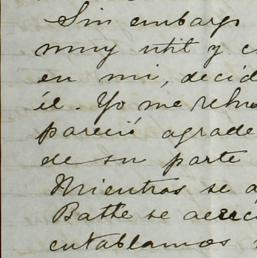 Sin embargo
muy util y c
en mi, decid
él. Yo me rehu
pareció agrade
de su parte
Mientras se a
Batlle se acerc
entablamos